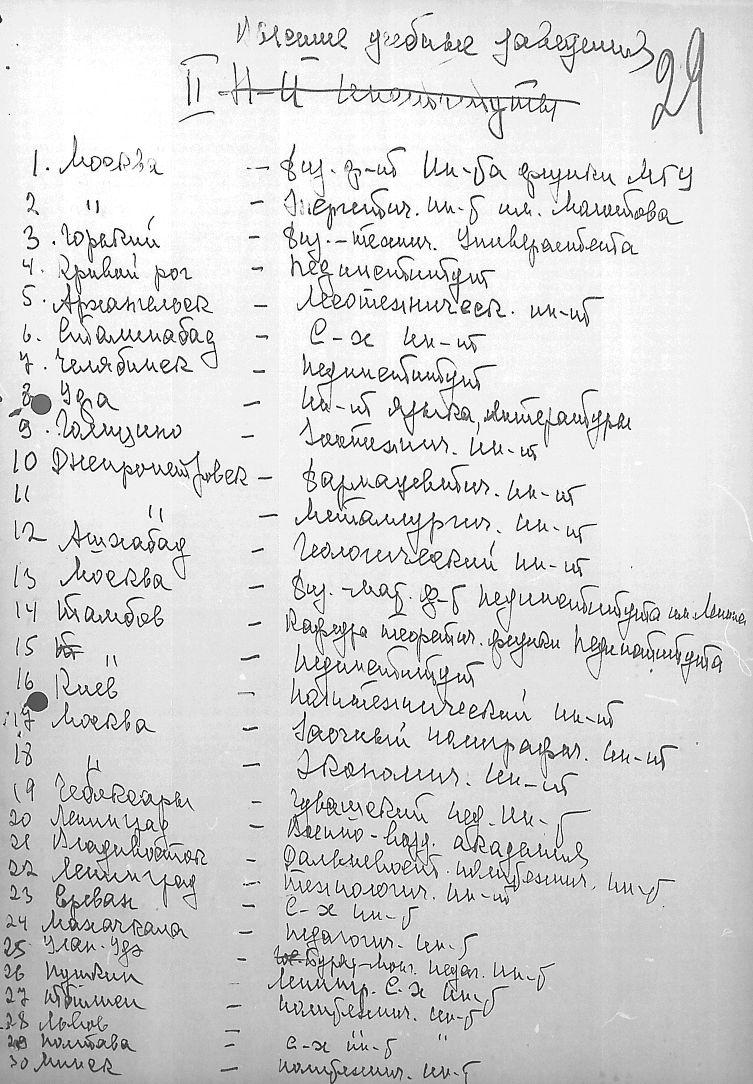 Высшие учебные заведения
29
II Н-И институты
1. Москва - Физ. ф-т Ин-та физики МГУ
2 " - Энергетич. ин-т им. Молотова
3. Горький - Физ.-технич. Университета
4. Кривой рог - Пединститут
5. Архангельск - Лесотехническ. ин-т
6. Сталинабад - С-х ин-т
7. Челябинск - Пединститут
8 Уфа - ин-т языка, литературы
9. Голицино - Зоотехнич. ин-т
10 Днепропетровск - Фармацевтич. ин-т
11 " - Металлургич. ин-т
12 Ашхабад - Геологический ин-т
13 Москва - Физ.-мат. ф-т Пединститута им. Ленина
14 Тамбов - Кафедра теоретич. физики Пединститута
15 " - Пединститут
16 Киев - Политехнический ин-т
17 Москва - Заочный полиграфич. ин-т
18 " - Экономич. ин-т
19 Чебоксары - Чувашский пед. ин-т
20 Ленинград - Военно-возд. академия
21 Владивосток - Дальневост. политехнич. ин-т
22 Ленинград - Технологич. ин-т
23 Ереван - С-х ин-т
24 Махачкала - Педагогич. ин-т
25 Улан-Удэ - Бурят-Монг. педаг. ин-т
26 Пушкин - Ленингр. С-х ин-т
27 Тбилиси - Политехнич. ин-т
28 Львов - "
29 Полтава - с-х ин-т
30 Минск - политехнич. ин-т